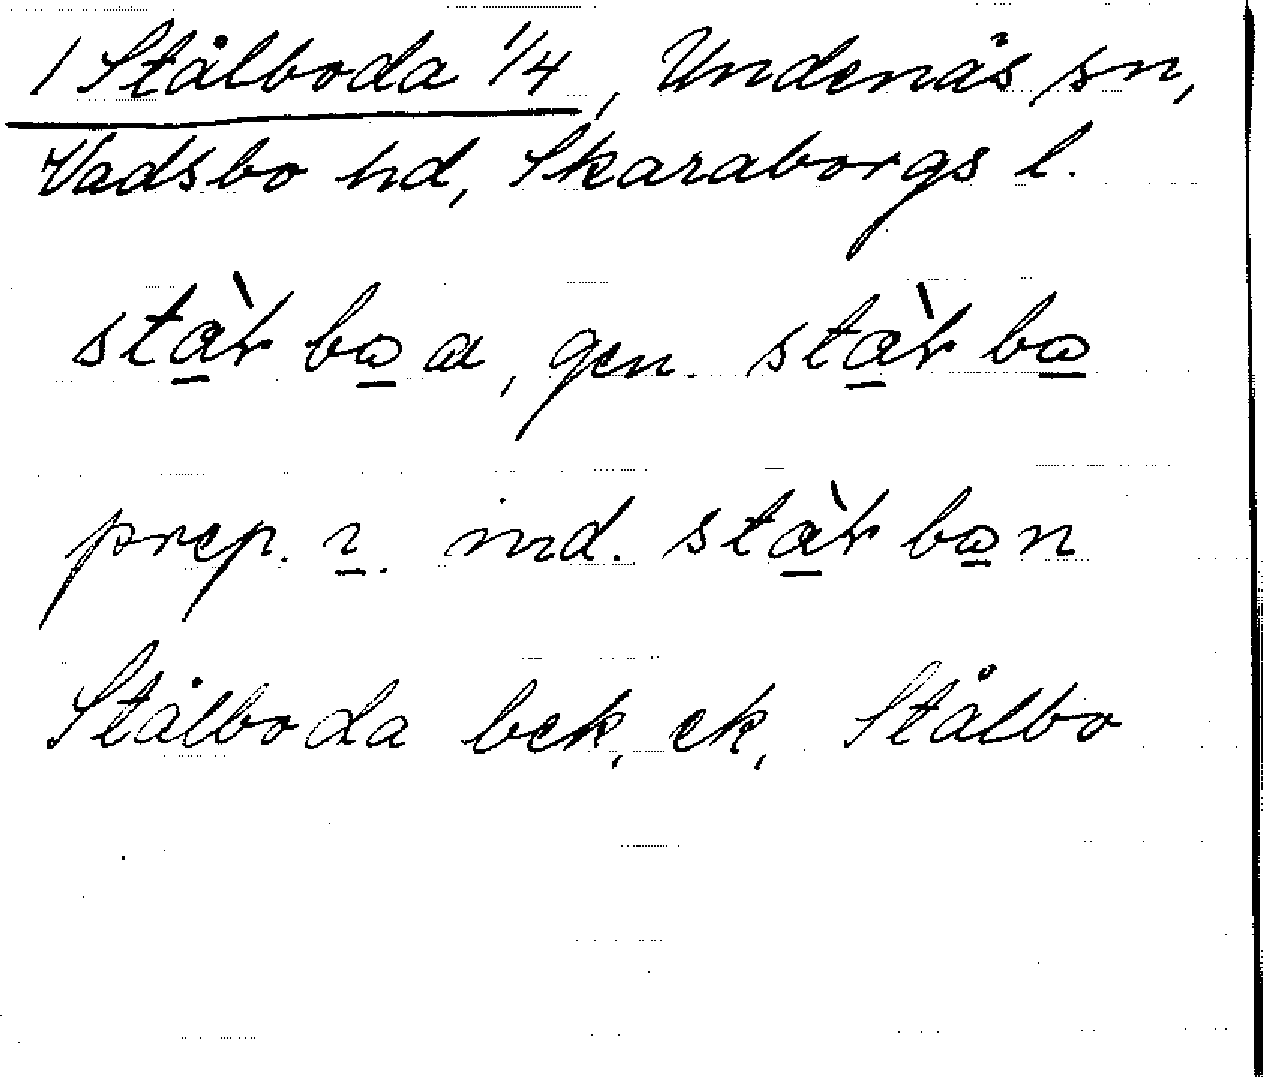 1 Stålboda 1/4, Undenäs sn,
Vadsbo hd, Skaraborgs l.
stà̲r bo̲ a, gen. stà̲r bo̲
prep. ı̲. ind. stà̲r bo̲n
Stålboda bek, ek, Stålbo